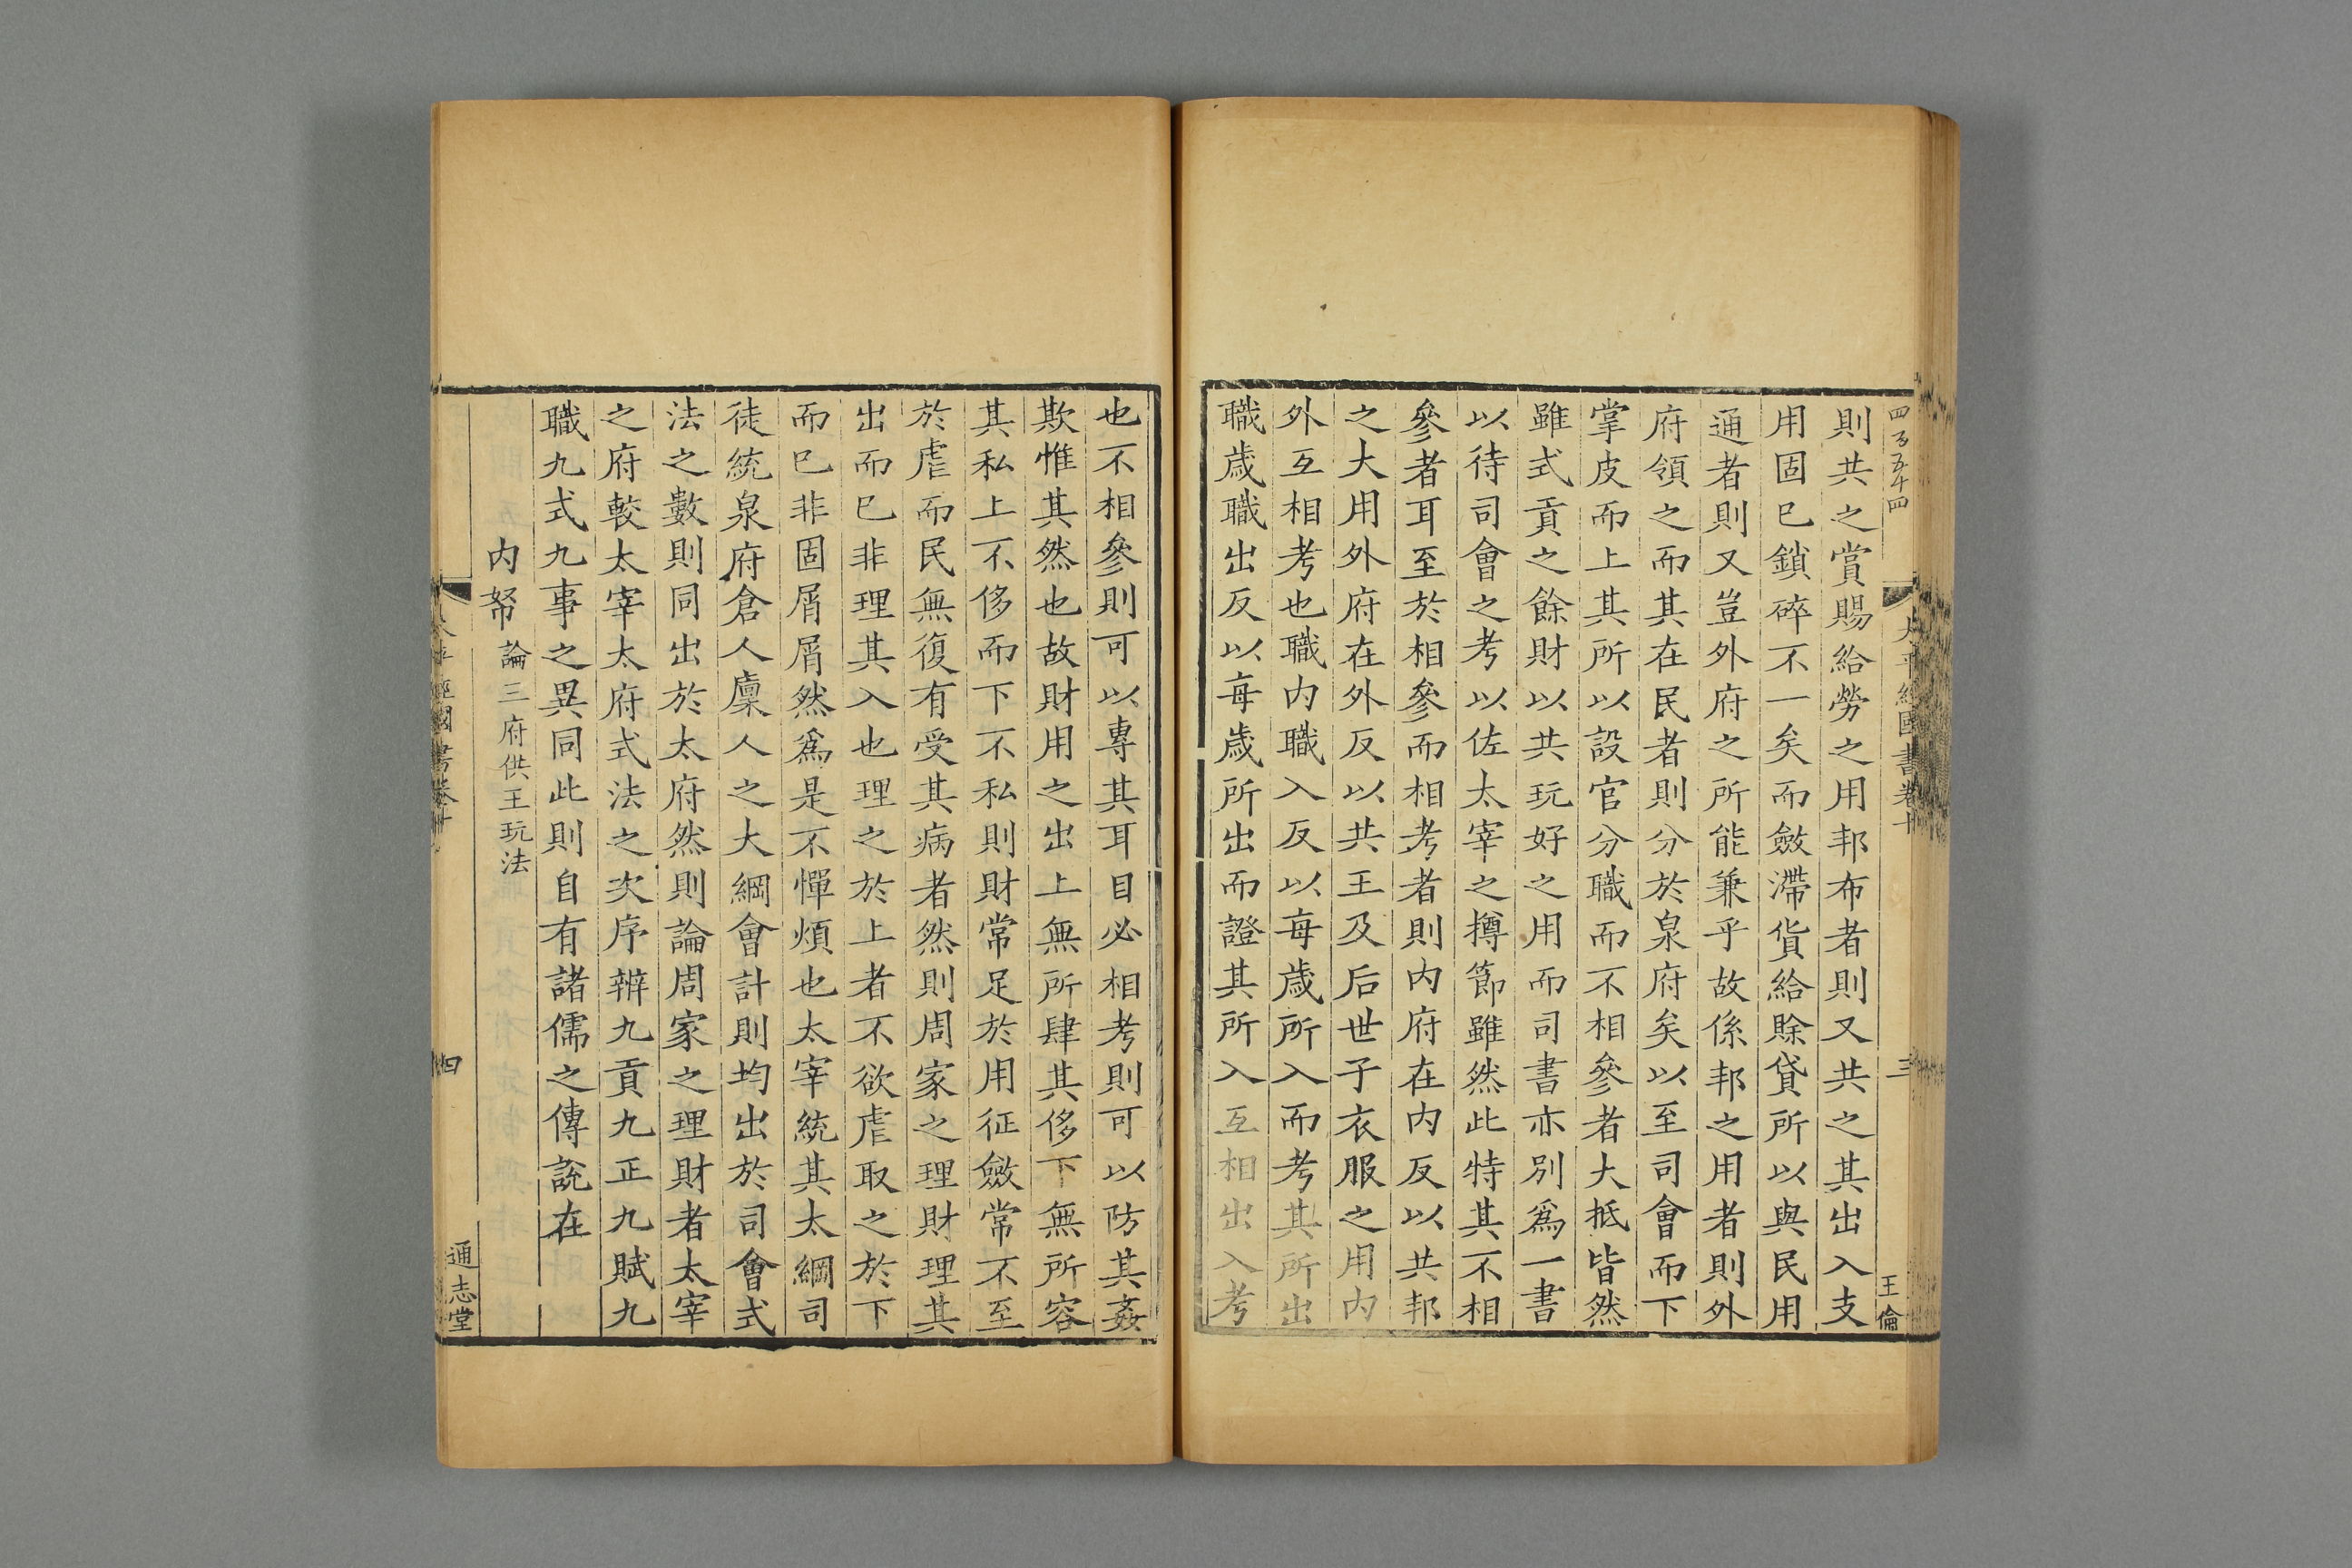 四百五十四
太平經國書卷十
三
王倫
則共之賞賜給勞之用邦布者則又共之其出入支
用固巳鎖碎不一矣而斂滯貨給賖貸所以與民用
通者則又豈外府之所能兼乎故係邦之用者則外
府領之而其在民者則分於泉府矣以至司會而下
掌皮而上其所以設官分職而不相參者大抵皆然
雖式貢之餘財以共玩好之用而司書亦別爲一書
以待司會之考以佐太宰之撙節雖然此特其不相
參者耳至於相參而相考者則内府在内反以共邦
之大用外府在外反以共王及后世子衣服之用内
外互相考也職内職入反以每歲所入而考其所出
職歲職出反以每歲所出而證其所入互相出入考
也不相參則可以專其耳目必相考則可以防其姦
欺惟其然也故財用之出上無所肆其侈下無所容
其私上不侈而下不私則財常足於用征斂常不至
於虐而民無復有受其病者然則周家之理財理其
出而已非理其入也理之於上者不欲虐取之於下
而巳非固屑屑然爲是不憚煩也太宰統其大綱司
徒統泉府倉人廩人之大綱會計則均出於司會式
法之數則同出於太府然則論周家之理財者太宰
之府較太宰太府式法之次序辨九貢九正九賦九
職九式九事之異同此則自有諸儒之傳說在
内帑論三府供王玩法
太平經國書卷十
四
通志堂